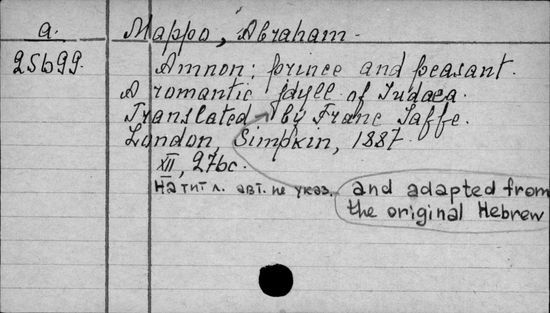 a. Mappo, Abraham.
25699. Amnon; prince and peasant.
A romantic idyll of Judaea.
Translated by Franc Jaffe.
London, Simpkin, 1887.
XII, 276c.
На тит л. авт. не указ.
and adapted from
the original Hebrew